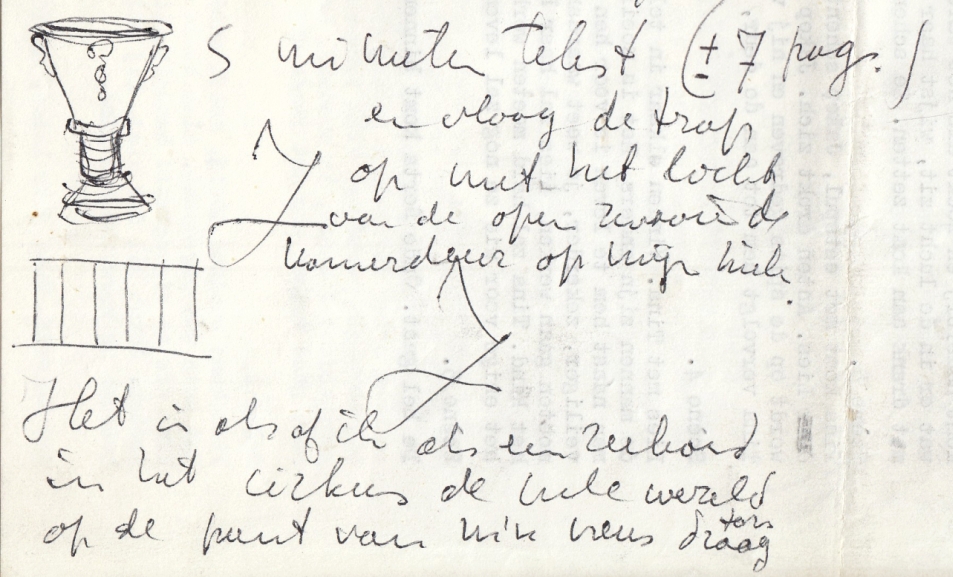 5 minuten tekst (± 7 pag.)
en vloog de trap
op met het licht
van de open
kamerdeur op mijn hiel.
Het is alsof ik als een zeehond
in het cirkus de hele wereld
op de punt van mijn neus
tors
draag